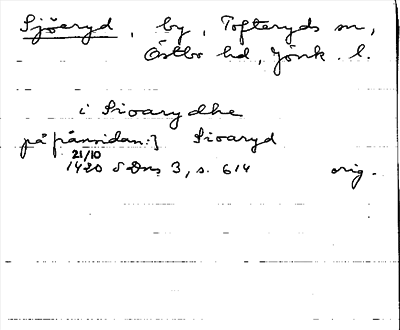 Sjöeryd, by, Tofteryds sn,
Östbo hd, Jönk. l.
i Sioarydhe
på frånsidan:] Sioaryd
21/10
1420 SDns 3, s. 614 orig.